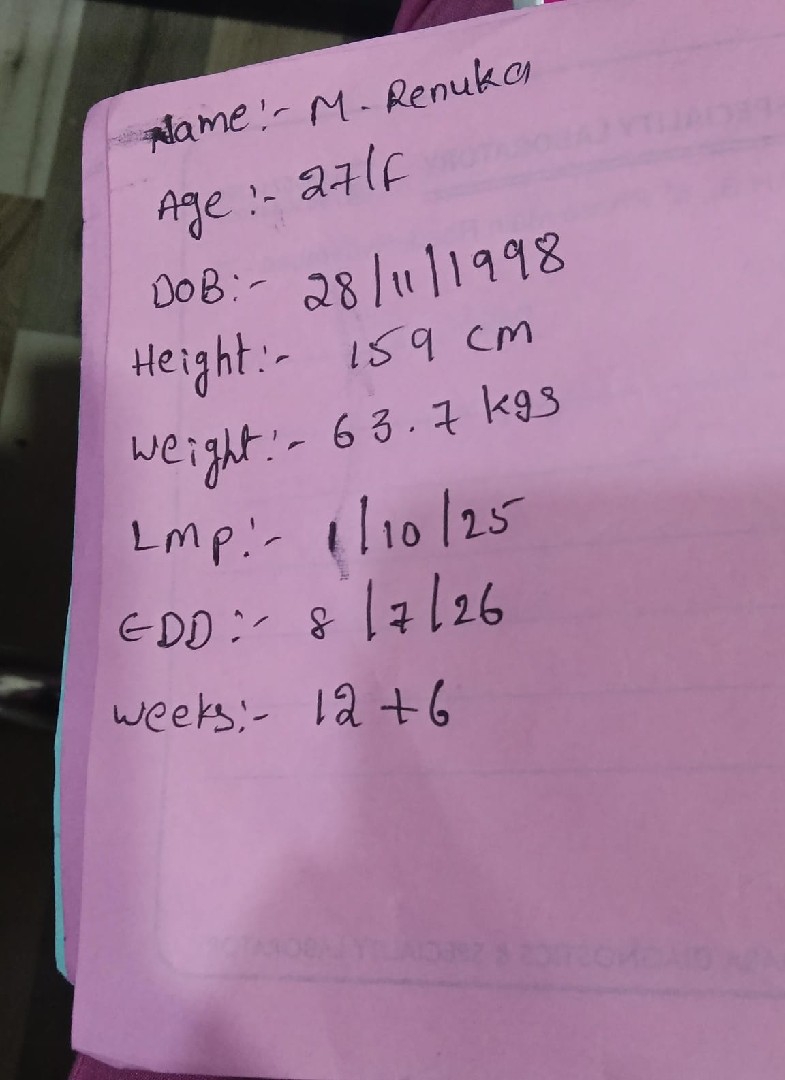 Name:- M. Renuka
Age:- 27/F
DOB:- 28/11/1998
Height:- 159 cm
Weight:- 63.7 kgs
LMP:- 1/10/25
EDD:- 8/7/26
Weeks:- 12+6